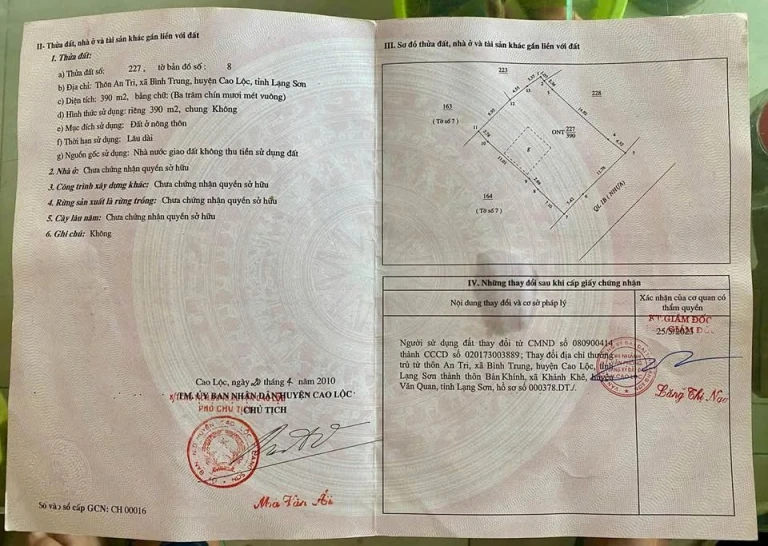 II- Thửa đất, nhà ở và tài sản khác gắn liền với đất
1. Thửa đất:
a) Thửa đất số: 227, tờ bản đồ số: 8
b) Địa chỉ: Thôn An Tri, xã Bình Trung, huyện Cao Lộc, tỉnh Lạng Sơn
c) Diện tích: 390 m2, bằng chữ: (Ba trăm chín mươi mét vuông)
d) Hình thức sử dụng: riêng 390 m2, chung Không
e) Mục đích sử dụng: Đất ở nông thôn
f) Thời hạn sử dụng: Lâu dài
g) Nguồn gốc sử dụng: Nhà nước giao đất không thu tiền sử dụng đất
2. Nhà ở: Chưa chứng nhận quyền sở hữu
3. Công trình xây dựng khác: Chưa chứng nhận quyền sở hữu
4. Rừng sản xuất là rừng trồng: Chưa chứng nhận quyền sở hữu
5. Cây lâu năm: Chưa chứng nhận quyền sở hữu
6. Ghi chú: Không
Cao Lộc, ngày 20 tháng 4 năm 2010
TM. ỦY BAN NHÂN DÂN HUYỆN CAO LỘC
PHÓ CHỦ TỊCH
CHỦ TỊCH
Số vào sổ cấp GCN: CH 00016
III. Sơ đồ thửa đất, nhà ở và tài sản khác gắn liền với đất
223
228
163
(Tờ số 7)
ONT 227
390
164
(Tờ số 7)
QL 1B (NHỰA)
IV. Những thay đổi sau khi cấp giấy chứng nhận
Nội dung thay đổi và cơ sở pháp lý
Xác nhận của cơ quan có
thẩm quyền
KT.GIÁM ĐỐC
25/9/2023
Người sử dụng đất thay đổi từ CMND số 080900414
thành CCCD số 020173003889; Thay đổi địa chỉ thường
trú từ thôn An Tri, xã Bình Trung, huyện Cao Lộc, tỉnh
Lạng Sơn thành thôn Bản Khính, xã Khánh Khê, huyện
Văn Quan, tỉnh Lạng Sơn, hồ sơ số 000378.DT./.